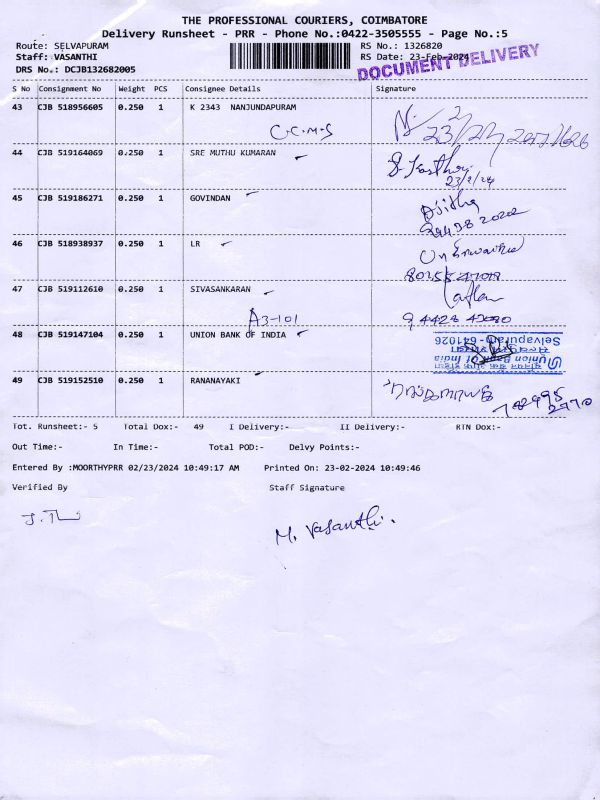 THE PROFESSIONAL COURIERS, COIMBATORE
Delivery Runsheet - PRR - Phone No.:0422-3505555 - Page No.:5
Route: SELVAPURAM RS No.: 1326820
Staff: VASANTHI RS Date: 23-Feb-2024
DOCUMENT DELIVERY
DRS No.: DCJB132682005
S No Consignment No Weight PCS Consignee Details Signature
43 CJB 518956605 0.250 1 K 2343 NANJUNDAPURAM
C.C.M.S
44 CJB 519164069 0.250 1 SRE MUTHU KUMARAN
23/2/24
45 CJB 519186271 0.250 1 GOVINDAN
46 CJB 518938937 0.250 1 LR
47 CJB 519112610 0.250 1 SIVASANKARAN
A3-101
48 CJB 519147104 0.250 1 UNION BANK OF INDIA
Union Bank of India
Selvapuram - 641026
49 CJB 519152510 0.250 1 RANANAYAKI
Tot. Runsheet:- 5 Total Dox:- 49 I Delivery:- II Delivery:- RTN Dox:-
Out Time:- In Time:- Total POD:- Delvy Points:-
Entered By :MOORTHYPRR 02/23/2024 10:49:17 AM Printed On: 23-02-2024 10:49:46
Verified By Staff Signature
M. Vasanthi.